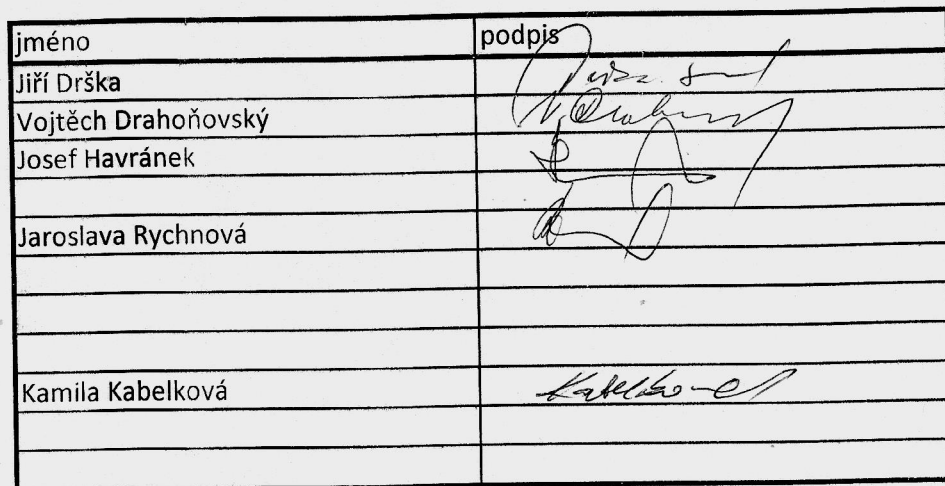 jméno podpis
Jiří Drška
Vojtěch Drahoňovský
Josef Havránek
Jaroslava Rychnová
Kamila Kabelková Kabelková